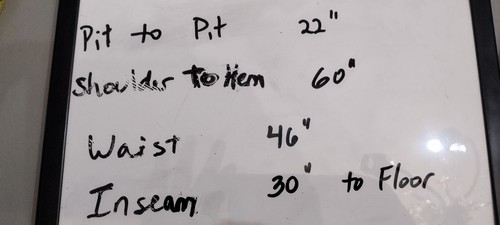 Pit to Pit 22"
Shoulder To Hem 60"
Waist 46"
Inseam 30" to Floor